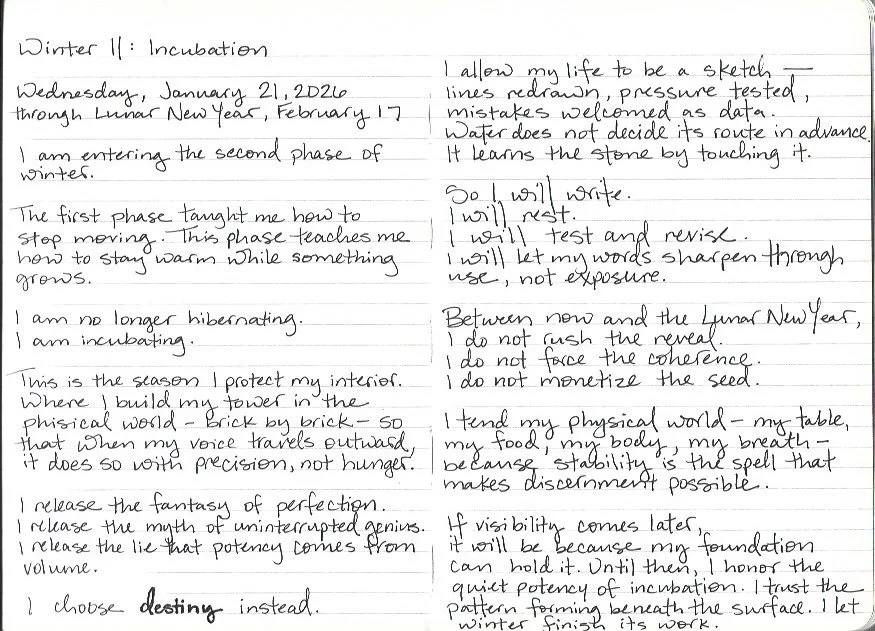 Winter II: Incubation
Wednesday, January 21, 2026
through Lunar New Year, February 17
I am entering the second phase of
winter.
The first phase taught me how to
stop moving. This phase teaches me
how to stay warm while something
grows.
I am no longer hibernating.
I am incubating.
This is the season I protect my interior.
Where I build my tower in the
phisical world - brick by brick - so
that when my voice travels outward,
it does so with precision, not hunger.
I release the fantasy of perfection.
I release the myth of uninterrupted genius.
I release the lie that potency comes from
volume.
I choose destiny instead.
I allow my life to be a sketch —
lines redrawn, pressure tested,
mistakes welcomed as data.
Water does not decide its route in advance.
It learns the stone by touching it.
So I will write.
I will rest.
I will test and revise.
I will let my words sharpen through
use, not exposure.
Between now and the Lunar New Year,
I do not rush the reveal.
I do not force the coherence.
I do not monetize the seed.
I tend my physical world - my table,
my food, my body, my breath -
because stability is the spell that
makes discernment possible.
If visibility comes later,
it will be because my foundation
can hold it. Until then, I honor the
quiet potency of incubation. I trust the
pattern forming beneath the surface. I let
winter finish its work.